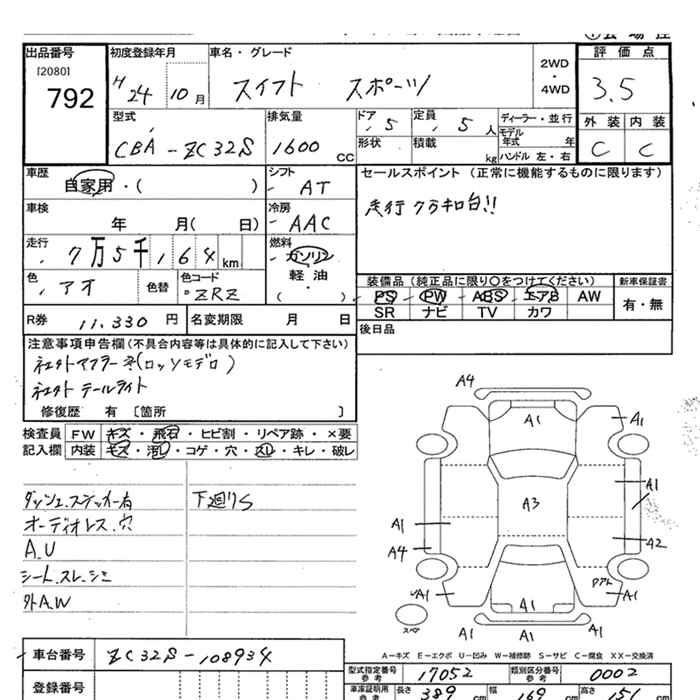 出品番号
[2080]
792
初度登録年月
H 24 10月
車名・グレード
スイフト スポーツ
2WD
・
4WD
評価点
3.5
外装 内装
C C
型式
CBA-ZC32S
排気量
1600 CC
ドア
5
定員
5人
形状
積載 kg
ディーラー・並行
モデル年式 年
ハンドル 左・右
車歴
自家用・( )
シフト
AT
車検
年 月( 日)
冷房
AAC
走行
7万5千,164 km
燃料
ガソリン
軽油
( )
色
アオ
色替
色コード
ZRZ
R券 11,330 円
名変期限 月 日
セールスポイント (正常に機能するものに限ります)
走行7万キロ台!!
装備品 (純正品に限り○をつけてください) 新車保証書
PS PW ABS エアB AW
SR ナビ TV カワ
有・無
後日品
注意事項申告欄(不具合内容等は具体的に記入して下さい)
社外マフラー(ロッソモデロ)
社外テールライト
修復歴 有 [箇所 ]
検査員 FW キズ・飛石・ヒビ割・リペア跡・×要
記入欄 内装 キズ・汚レ・コゲ・穴・スレ・キレ・破レ
ダッシュ.ステッカー有
オーディオレス.穴
A.U
シート.スレ.シミ
外A.W
下廻りS
A4
A1
A1
A1
A3
A1
A4
A2
A1
Pアト
A1
A1
A1
A1
スペア
A-キズ E-エクボ U-凹み W-補修跡 S-サビ C-腐食 XX-交換済
車台番号 ZC32S-108934
登録番号
型式指定番号 参考 17052
類別区分番号 参考 0002
車庫証明用 参考 長さ 389 cm 幅 169 cm 高さ 151 cm